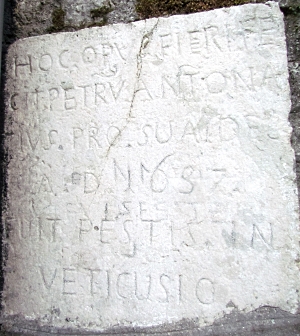 HOC OPVS FIERI FE
CIT PETRV ANTONA
IVS. PRO. SUA DES
A. D. N. 1657.
FUIT PESTIS. IN
VETICUSIO